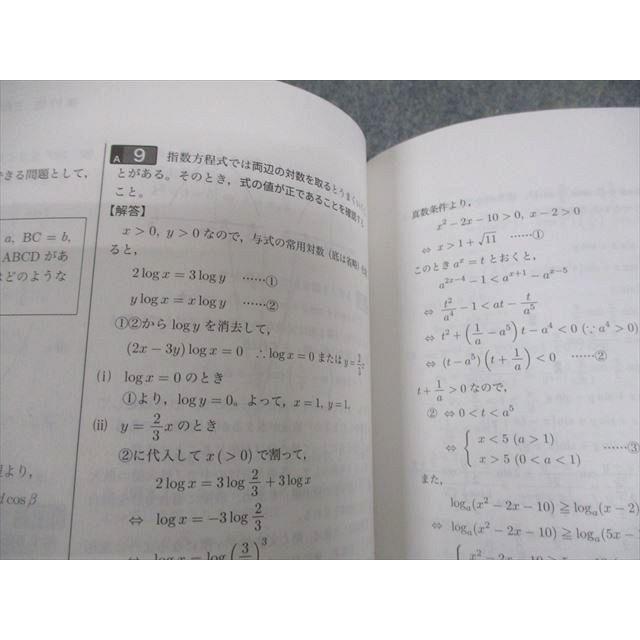 きる問題として,
a, BC = b,
ABCD があ
はどのような
程より,
d cos β
A 9 指数方程式では両辺の対数を取るとうまくいくこ
とがある。そのとき, 式の値が正であることを確認する
こと。
【解答】
x > 0, y > 0 なので, 与式の常用対数 (底は省略)
ると,
2 log x = 3 log y ……①
y log x = x log y ……②
①②から log y を消去して,
(2x − 3y) log x = 0 ∴ log x = 0 または y = 2/3
(i) log x = 0 のとき
①より, log y = 0。よって, x = 1, y = 1,
(ii) y = 2/3 x のとき
②に代入して x (> 0) で割って,
2 log x = 3 log 2/3 + 3 log x
⇔ log x = −3 log 2/3
⇔ log x = log (3/
)³
真数条件より,
x² − 2x − 10 > 0, x − 2 > 0
⇔ x > 1 + √11 ……①
このとき aˣ = t とおくと,
a²ˣ⁻⁴ − 1 < aˣ⁺¹ − aˣ⁻⁵
⇔ t²/a⁴ − 1 < at − t/a⁵
⇔ t² + (1/a − a⁵) t − a⁴ < 0 (∵ a⁴ > 0)
⇔ (t − a⁵)(t + 1/a) < 0 ……②
t + 1/a > 0 なので,
② ⇔ 0 < t < a⁵
⇔ { x < 5 (a > 1)
x > 5 (0 < a < 1) ……③
また,
logₐ(x² − 2x − 10) ≧ logₐ(x − 2)
⇔ logₐ(x² − 2x − 10) ≧ logₐ(5x −
x² − 2x − 10